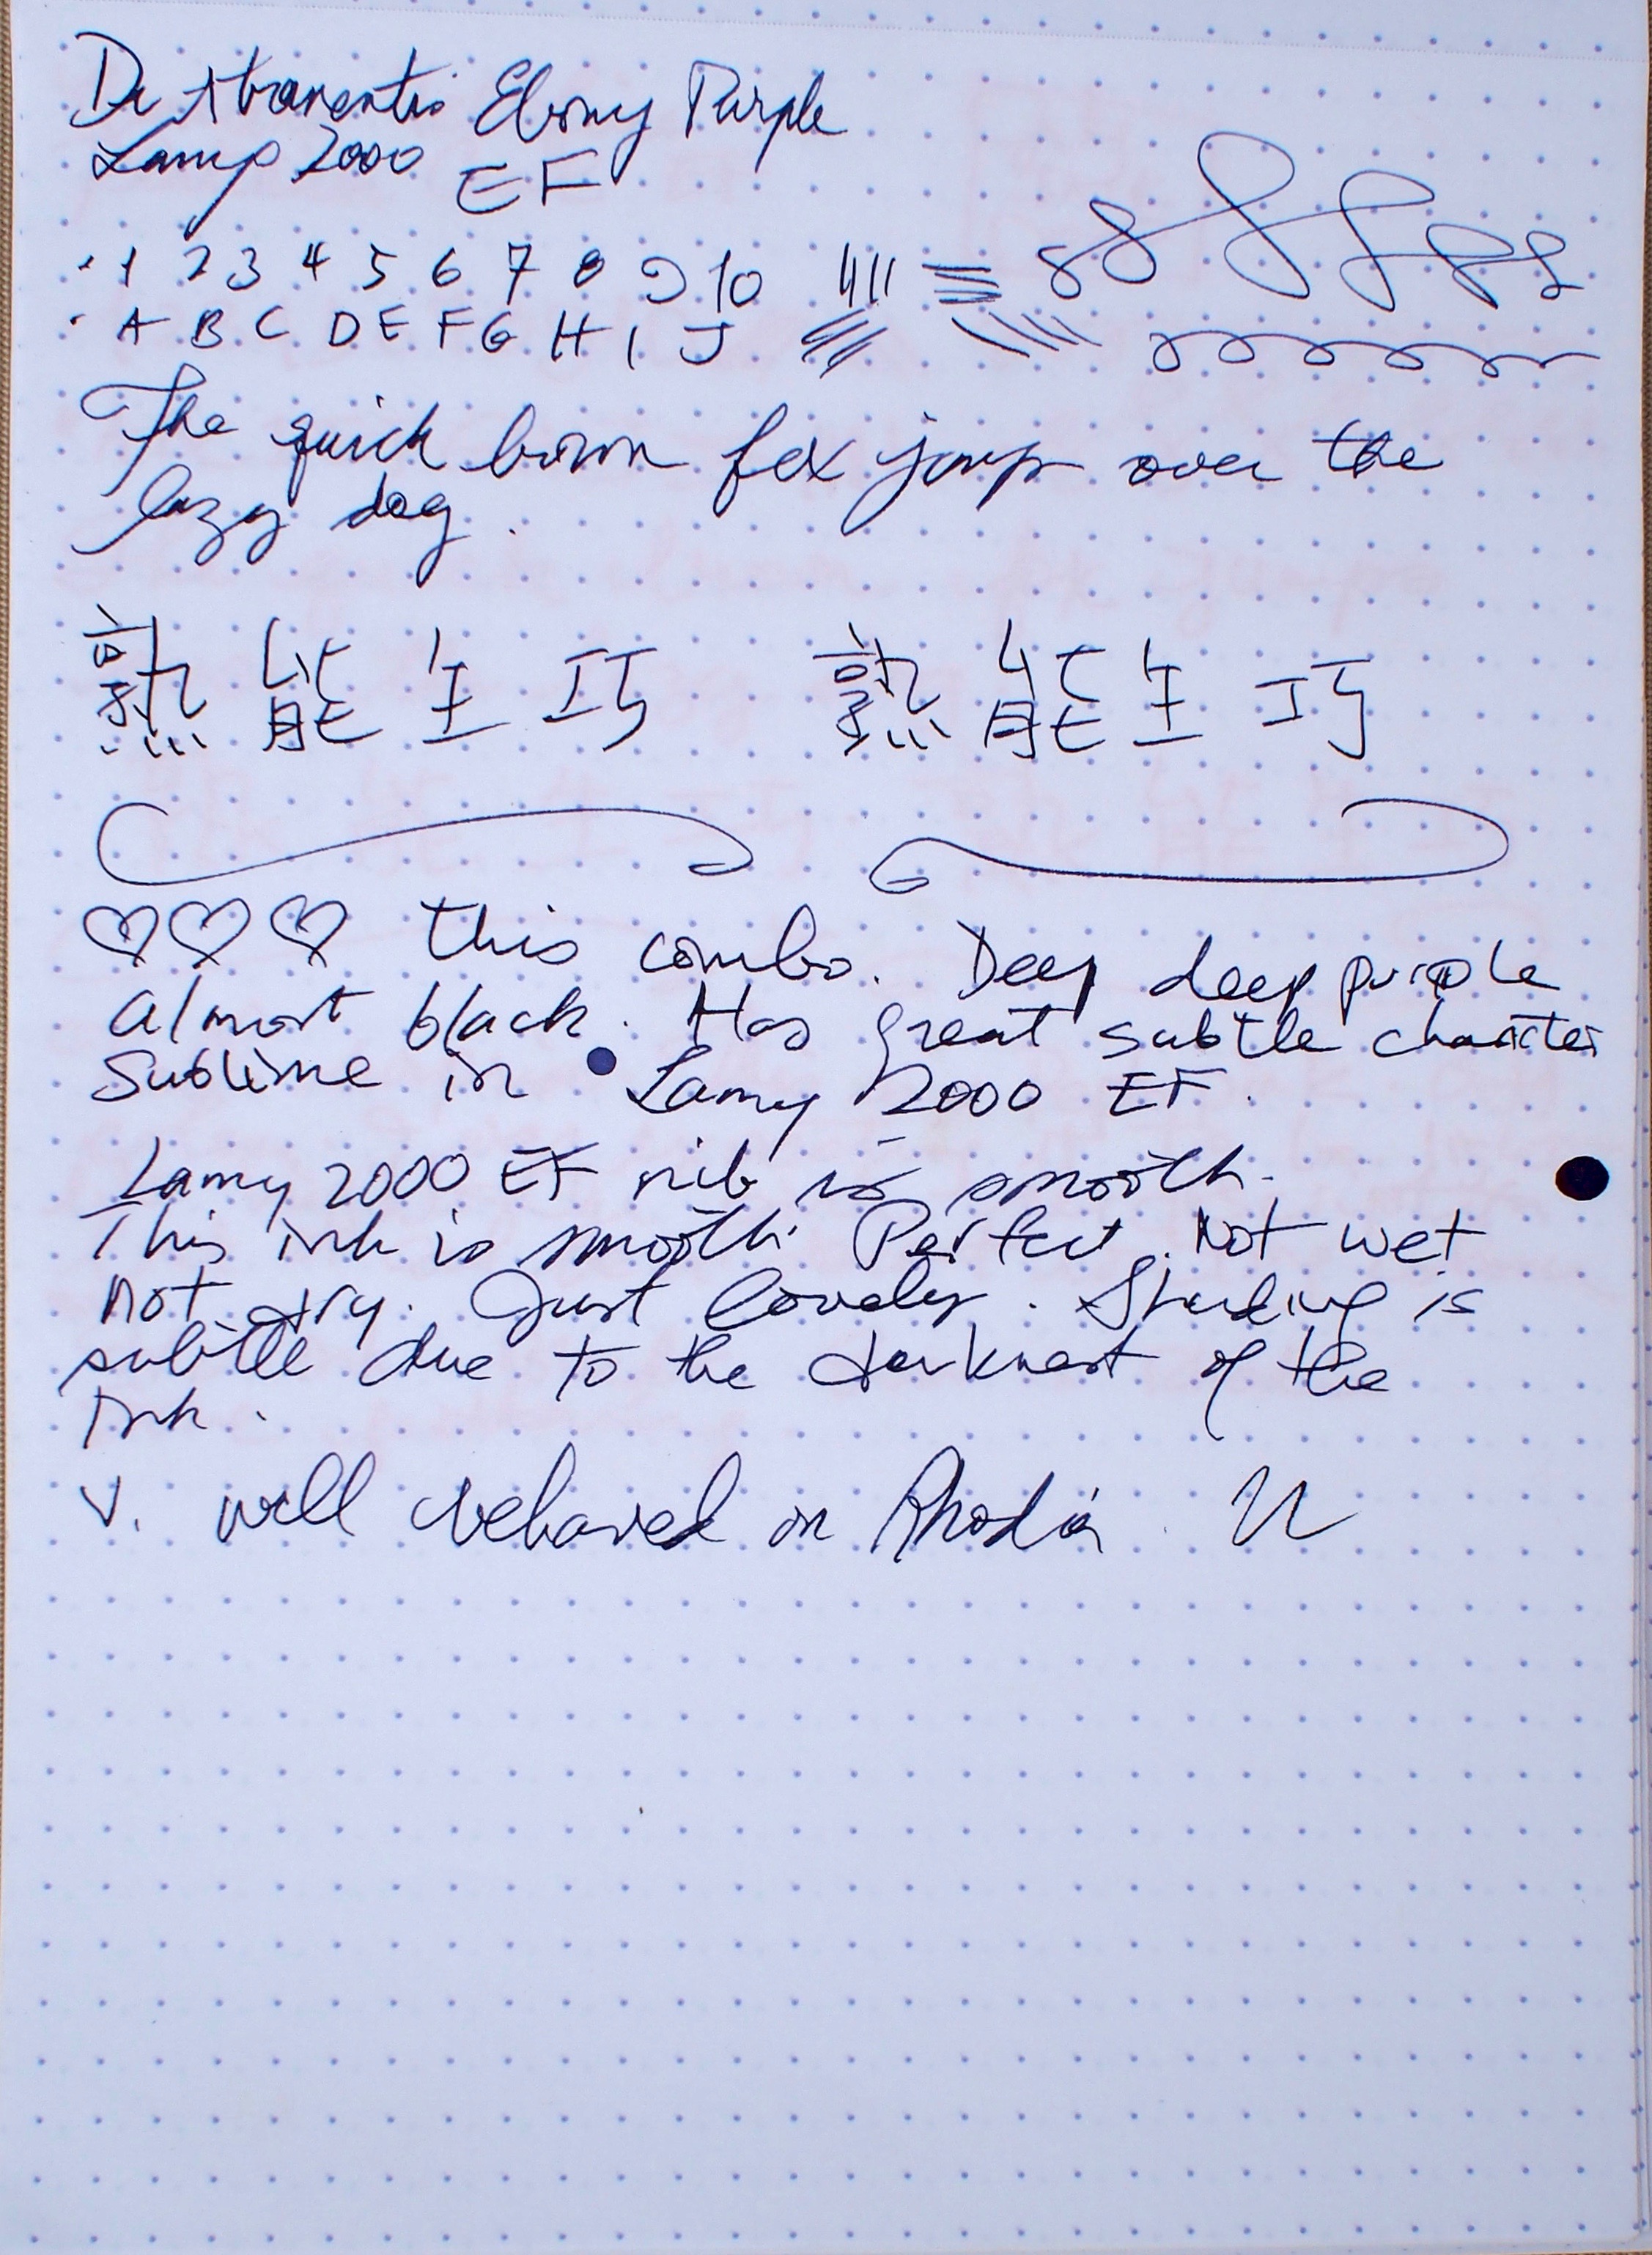 De Atramentis Ebony Purple
Lamy 2000 EF
1 2 3 4 5 6 7 8 9 10
A B C D E F G H I J
The quick brown fox jump over the
lazy dog.
熟能生巧 熟能生巧
♡♡♡ this combo. Deep deep purple
almost black. Has great subtle character
Sublime in Lamy 2000 EF.
Lamy 2000 EF nib is smooth.
This ink is smooth. Perfect. Not wet
not dry. Just lovely. Shading is
subtle due to the darkness of the
ink.
V. well behaved on Rhodia.